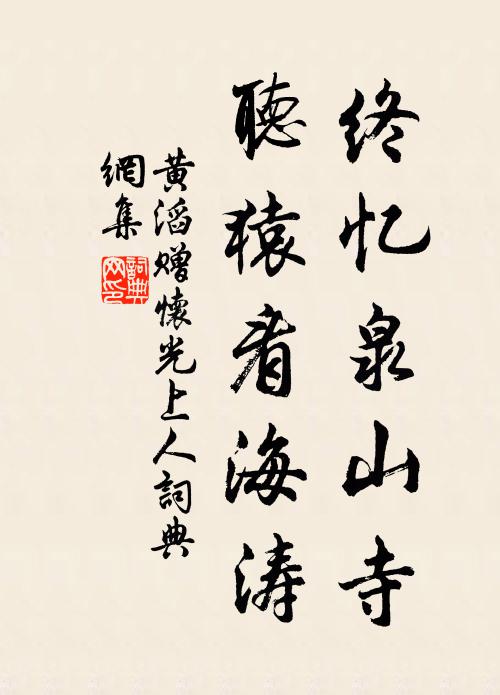 终忆泉山寺
聽猿看海涛
黄滔赠懷光上人詞典
網集
詞典网印